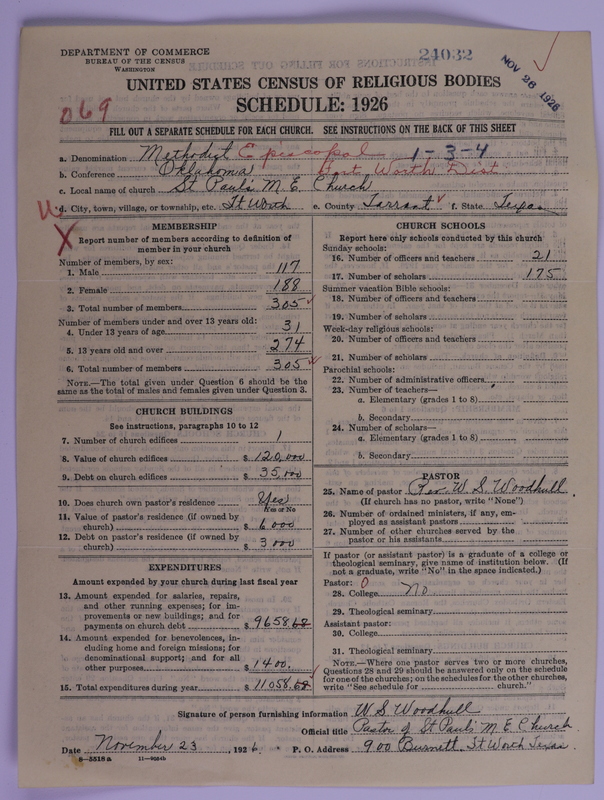 DEPARTMENT OF COMMERCE
BUREAU OF THE CENSUS
WASHINGTON
24032
NOV 26 1926
UNITED STATES CENSUS OF RELIGIOUS BODIES
SCHEDULE: 1926
069
FILL OUT A SEPARATE SCHEDULE FOR EACH CHURCH. SEE INSTRUCTIONS ON THE BACK OF THIS SHEET
a. Denomination Methodist Episcopal 1-3-4
b. Conference Oklahoma Fort Worth Dist
c. Local name of church St Paul's M. E. Church
d. City, town, village, or township, etc. Ft Worth e. County Tarrant f. State Texas
MEMBERSHIP
Report number of members according to definition of member in your church
Number of members, by sex:
1. Male 117
2. Female 188
3. Total number of members 305
Number of members under and over 13 years old:
4. Under 13 years of age 31
5. 13 years old and over 274
6. Total number of members 305
NOTE.—The total given under Question 6 should be the same as the total of males and females given under Question 3.
CHURCH BUILDINGS
See instructions, paragraphs 10 to 12
7. Number of church edifices 1
8. Value of church edifices $ 120,000
9. Debt on church edifices $ 35,000
10. Does church own pastor's residence Yes
Yes or No
11. Value of pastor's residence (if owned by church) $ 6000
12. Debt on pastor's residence (if owned by church) $ 3000
EXPENDITURES
Amount expended by your church during last fiscal year
13. Amount expended for salaries, repairs, and other running expenses; for improvements or new buildings; and for payments on church debt $ 9658.68
14. Amount expended for benevolences, including home and foreign missions; for denominational support; and for all other purposes $ 1400.
15. Total expenditures during year $ 11058.68
CHURCH SCHOOLS
Report here only schools conducted by this church
Sunday schools:
16. Number of officers and teachers 21
17. Number of scholars 175
Summer vacation Bible schools:
18. Number of officers and teachers
19. Number of scholars
Week-day religious schools:
20. Number of officers and teachers
21. Number of scholars
Parochial schools:
22. Number of administrative officers
23. Number of teachers—
a. Elementary (grades 1 to 8)
b. Secondary
24. Number of scholars—
a. Elementary (grades 1 to 8)
b. Secondary
PASTOR
25. Name of pastor Rev. W. S. Woodhull.
(If church has no pastor, write "None")
26. Number of ordained ministers, if any, employed as assistant pastors
27. Number of other churches served by the pastor or his assistants
If pastor (or assistant pastor) is a graduate of a college or theological seminary, give name of institution below. (If not a graduate, write "No" in the space indicated.)
Pastor: 0
28. College No
29. Theological seminary
Assistant pastor:
30. College
31. Theological seminary
NOTE.—Where one pastor serves two or more churches, Questions 28 and 29 should be answered only on the schedule for one of the churches; on the schedules for the other churches, write "See schedule for church."
Signature of person furnishing information W S Woodhull
Official title Pastor of St Paul's M. E. Church
Date November 23, 1926. P. O. Address 900 Burnett, Ft Worth Texas.
8—5518a 11—9284b